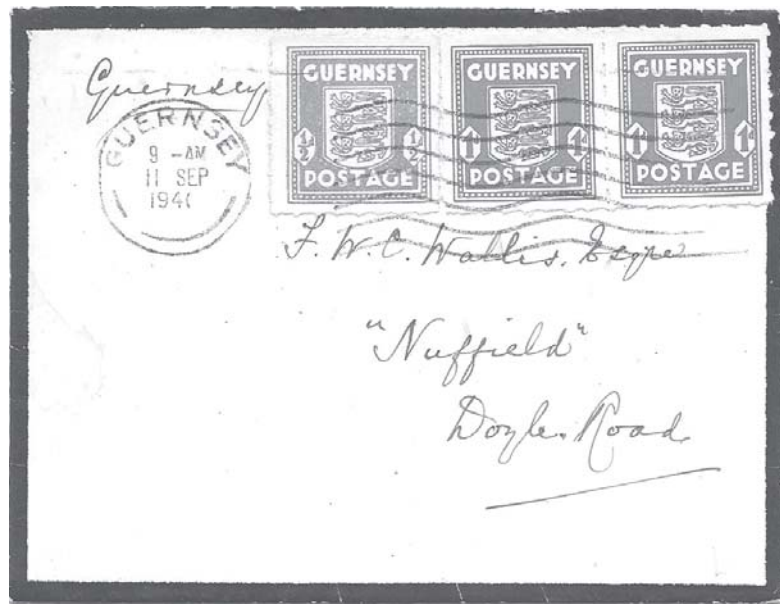 Guernsey
GUERNSEY
9 - AM
11 SEP
GUERNSEY
½ ½
POSTAGE
GUERNSEY
1D 1D
POSTAGE
GUERNSEY
1D 1D
POSTAGE
F. W. C. Wallis. Esqre
"Nuffield"
Doyle. Road.